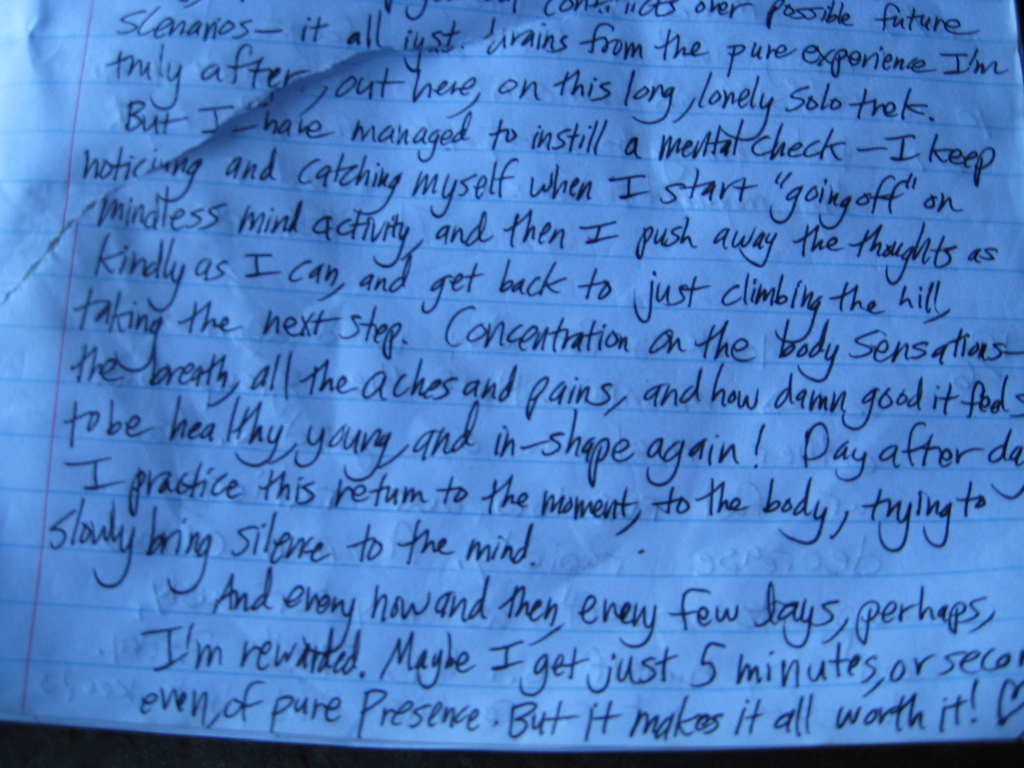 over possible future
scenarios— it all just drains from the pure experience I'm
truly after, out here, on this long, lonely solo trek.
But I have managed to instill a mental check — I keep
noticing and catching myself when I start "going off" on
mindless mind activity, and then I push away the thoughts as
kindly as I can, and get back to just climbing the hill,
taking the next step. Concentration on the body sensations—
the breath, all the aches and pains, and how damn good it feels
to be healthy, young, and in-shape again! Day after da
I practice this return to the moment, to the body, trying to
slowly bring silence to the mind.
And every now and then, every few days, perhaps,
I'm rewarded. Maybe I get just 5 minutes, or secon
even, of pure Presence. But it makes it all worth it! ♡